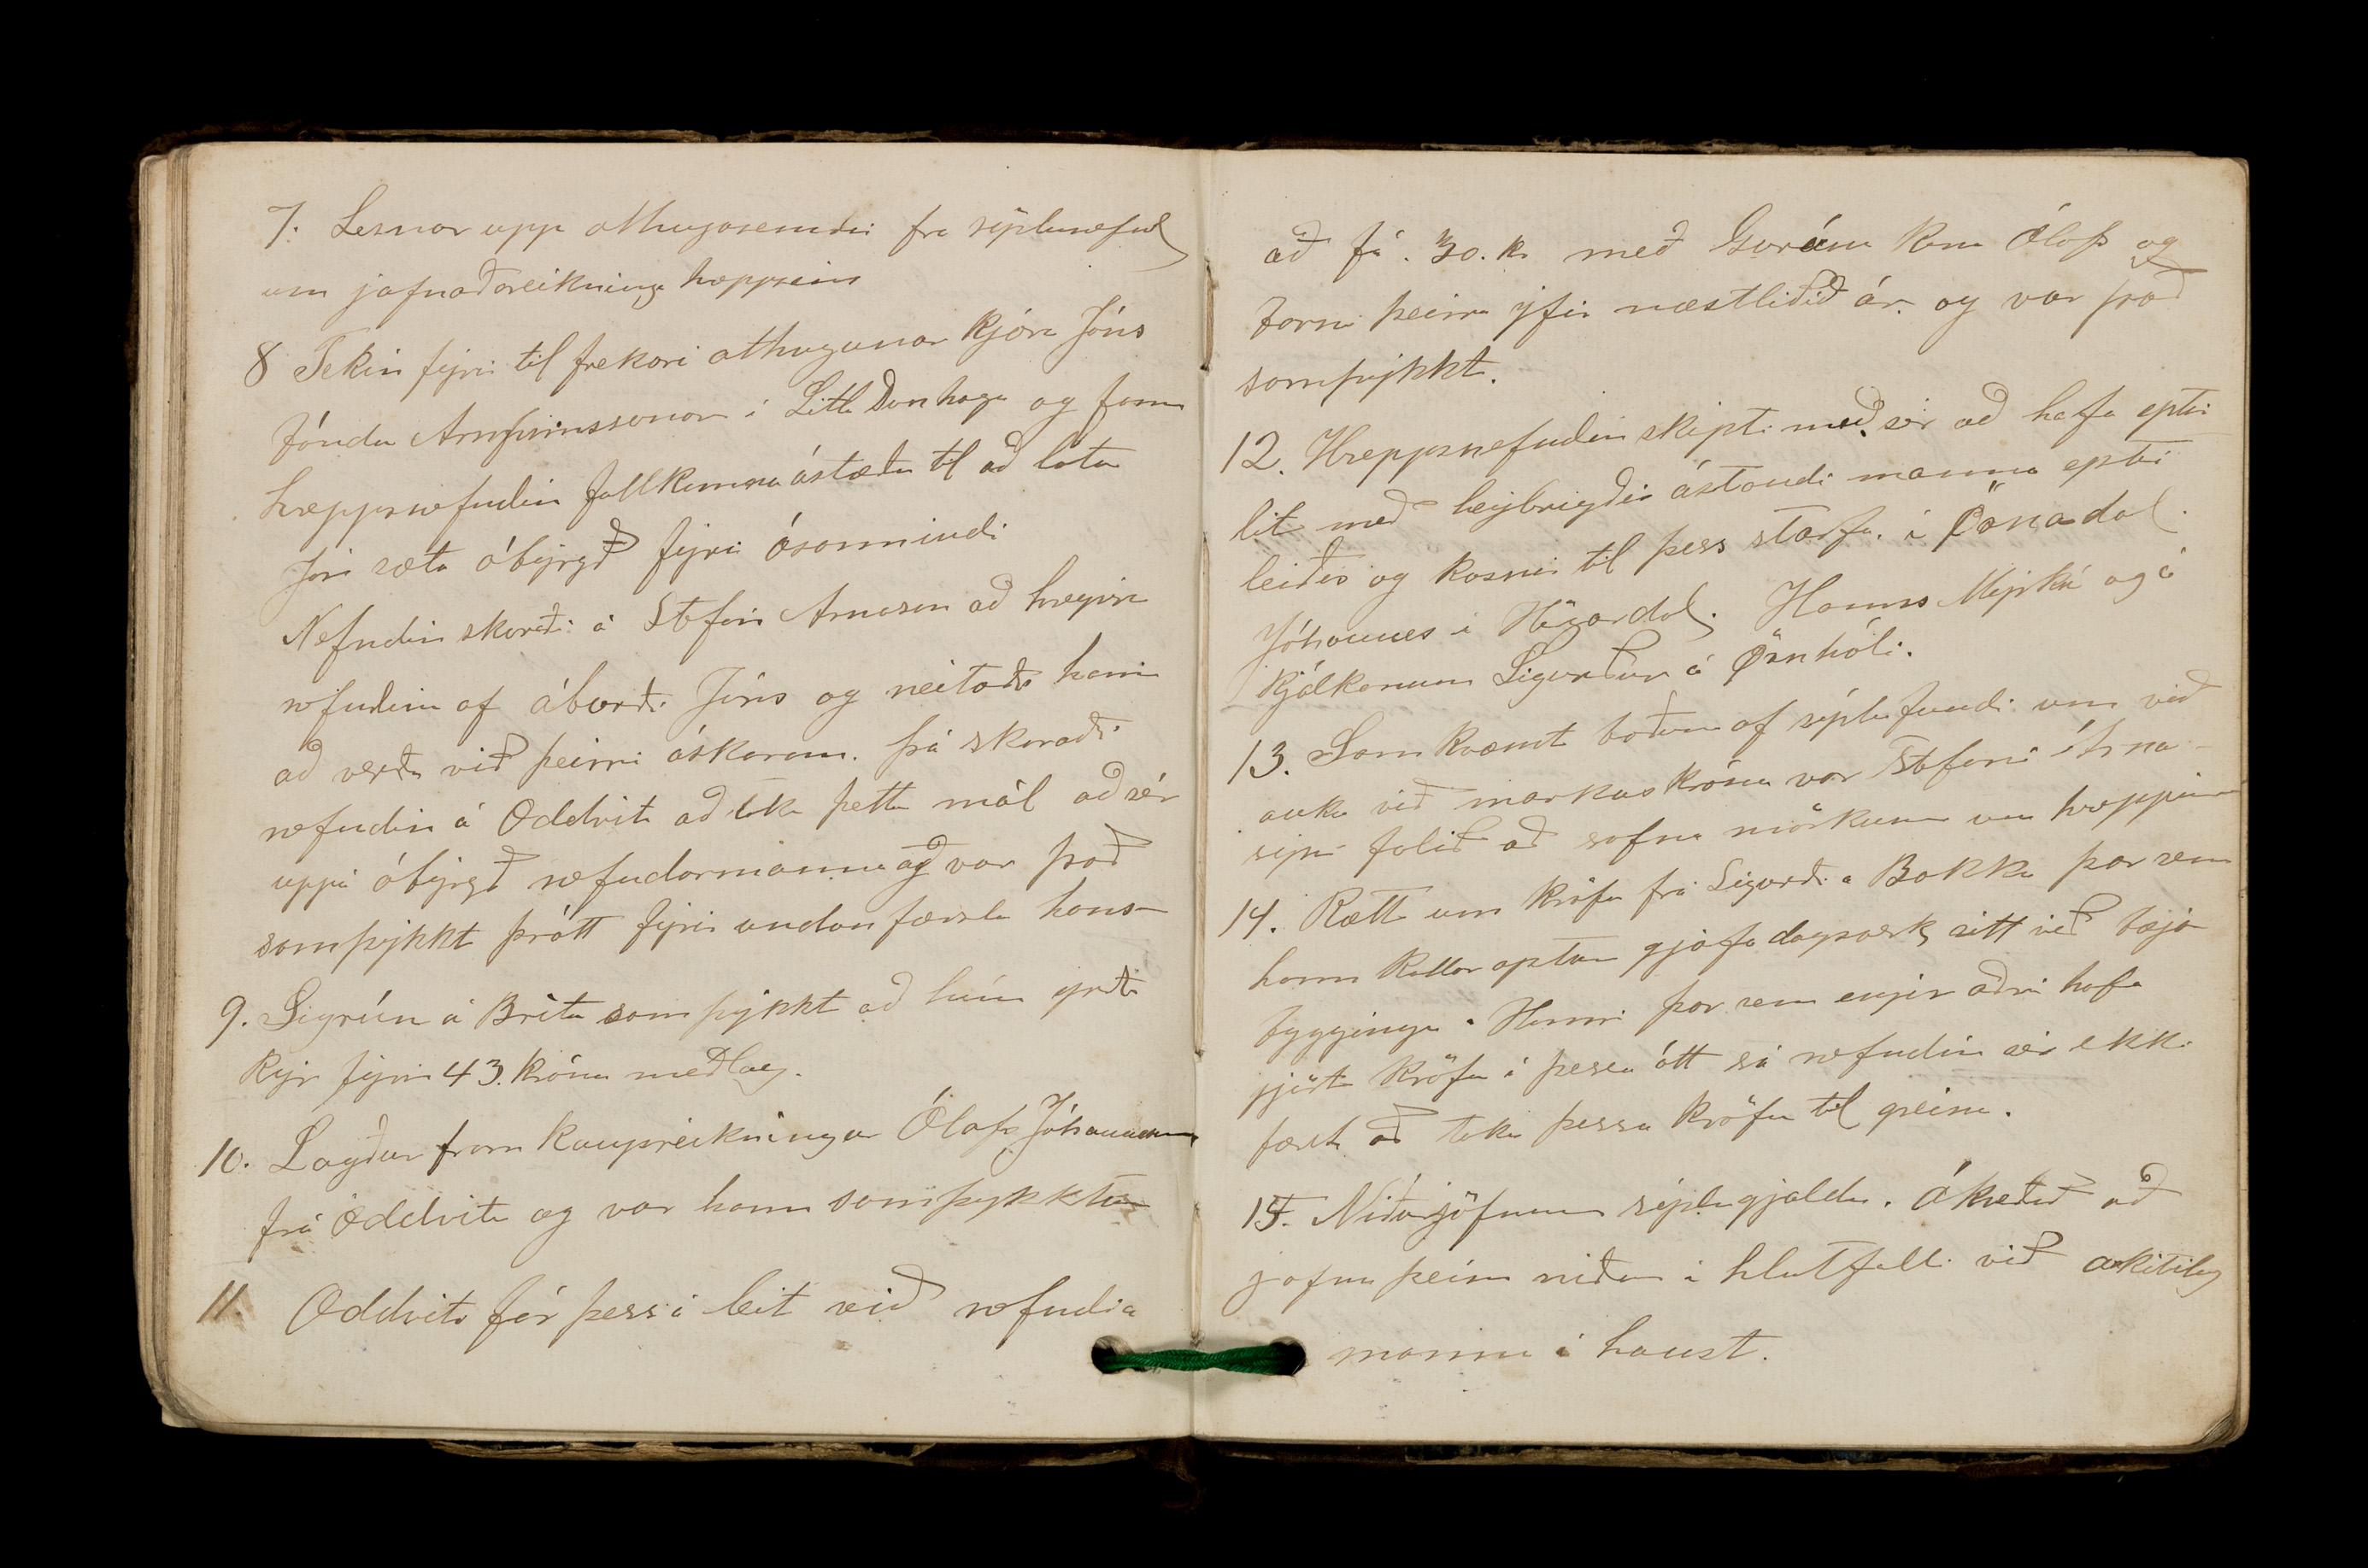 7. Lesnar upp athugasemdir fra sýslunefnd
um jafnaðareikninga hreppsins
8 Tekin fyrir til frekari athugunar kjöra Jóns
Jónda Arnfinnssonar í Litla Dunhaga og fann
hreppsnefndin fullkomna ástæðu til að láta
Jón sæta ábyrgð fyrir ósannindi
Nefndin skoraði á Stefán Arnason að hreinsa
nefndina af áburði Jóns og neitaði hann
að verða við þeirri áskorun. þá skoraði
nefndin á Oddvita að taka þetta mál að sér
uppá ábyrgð nefndarmanna og var það
samþykkt þrátt fyrir undanfærslu hans
9. Sigrún á Brita samþykkt að hún yrði
kyr fyrir 43. króna meðlag.
10. Lagður fram kaupreikningur Ólafs Jóhannssonar
frá Oddvita og var hann samþykktur
11. Oddviti fór þess á leit við nefndina
að fá. 30. kr með Guránu konu Ólafs og
barni þeirra yfir næstliðið ár. og var það
samþykkt.
12. Hreppsnefndin skipti með sér að hafa eptir
lit með heybrigðis ástandi manna eptir
leiðis og kosnir til þess starfa. í Öxnadal.
Jóhannes í Hörgardal. Hannes Myrká og á
kjálkanum Sigurður á Öxnhóli.
13. Samkvæmt boðun af sýslufundi um við
auka við markaskrána var Stefáni Árna-
syni falið að safna mörkum um hreppinn
14. Rætt um kröfu frá Sigurði á Bakka þar sem
hann kallar aptur gjafadagsverk sitt við bæja
byggingu á Hrauni þar sem engir aðrir hafa
gjört kröfu í þessa átt sá nefndin sér ekki
fært að taka þessa kröfu til greina.
15. Niðurjöfnun sýslugjalda. Ákveðið að
jafna þeim niður í hlutfalli við
manna í haust.